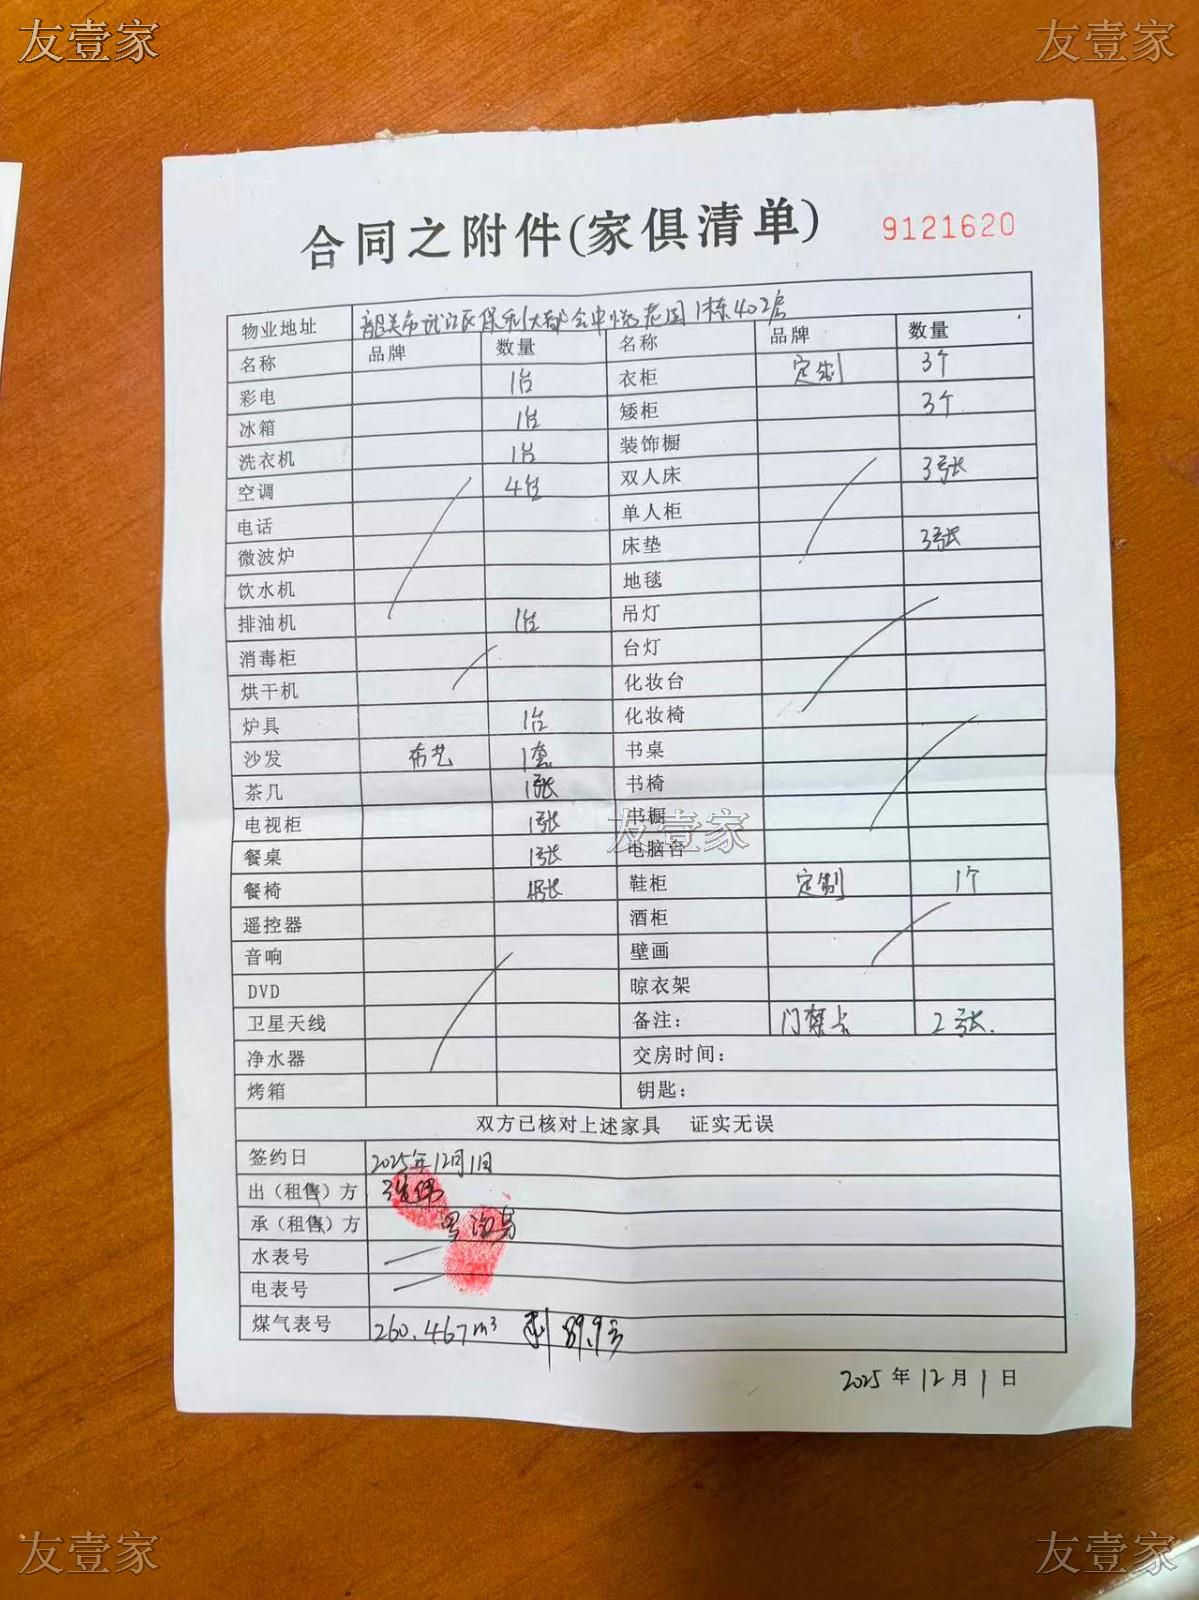 友壹家 友壹家
合同之附件(家俱清单) 9121620
物业地址 韶关市武江区保利大都会中悦花园1栋402房
名称 品牌 数量 名称 品牌 数量
彩电 1台 衣柜 定制 3个
冰箱 1台 矮柜 3个
洗衣机 1台 装饰橱
空调 4台 双人床 3张
电话 单人柜
微波炉 床垫 3张
饮水机 地毯
排油机 1台 吊灯
消毒柜 台灯
烘干机 化妆台
炉具 1台 化妆椅
沙发 布艺 1套 书桌
茶几 1张 书椅
电视柜 1张 书橱
友壹家
餐桌 1张 电脑台
餐椅 4张 鞋柜 定制 1个
遥控器 酒柜
音响 壁画
DVD 晾衣架
卫星天线 备注: 门禁卡 2张.
净水器 交房时间:
烤箱 钥匙:
双方已核对上述家具 证实无误
签约日 2025年12月1日
出(租售)方
承(租售)方
水表号
电表号
煤气表号 260.467m³ 剩89.9方
2025年12月1日
友壹家 友壹家